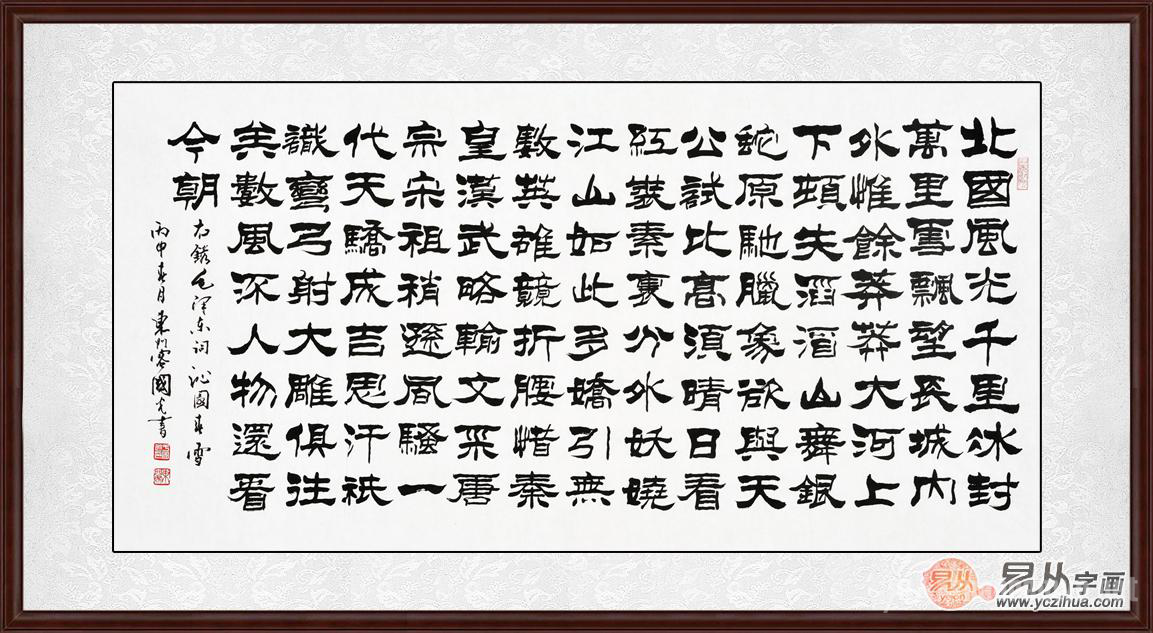 北國風光千里冰封
萬里雪飄望長城內
外惟餘莽莽大河上
下頓失滔滔山舞銀
蛇原馳臘象欲與天
公試比高須晴日看
紅裝素裹分外妖嬈
江山如此多嬌引無
數英雄競折腰惜秦
皇漢武略輸文采唐
宗宋祖稍遜風騷一
代天驕成吉思汗祇
識彎弓射大雕俱往
矣數風流人物還看
今朝
右錄毛澤东詞沁園春雪
丙申春月東川客國光書
易从
易从字画
www.yczihua.com